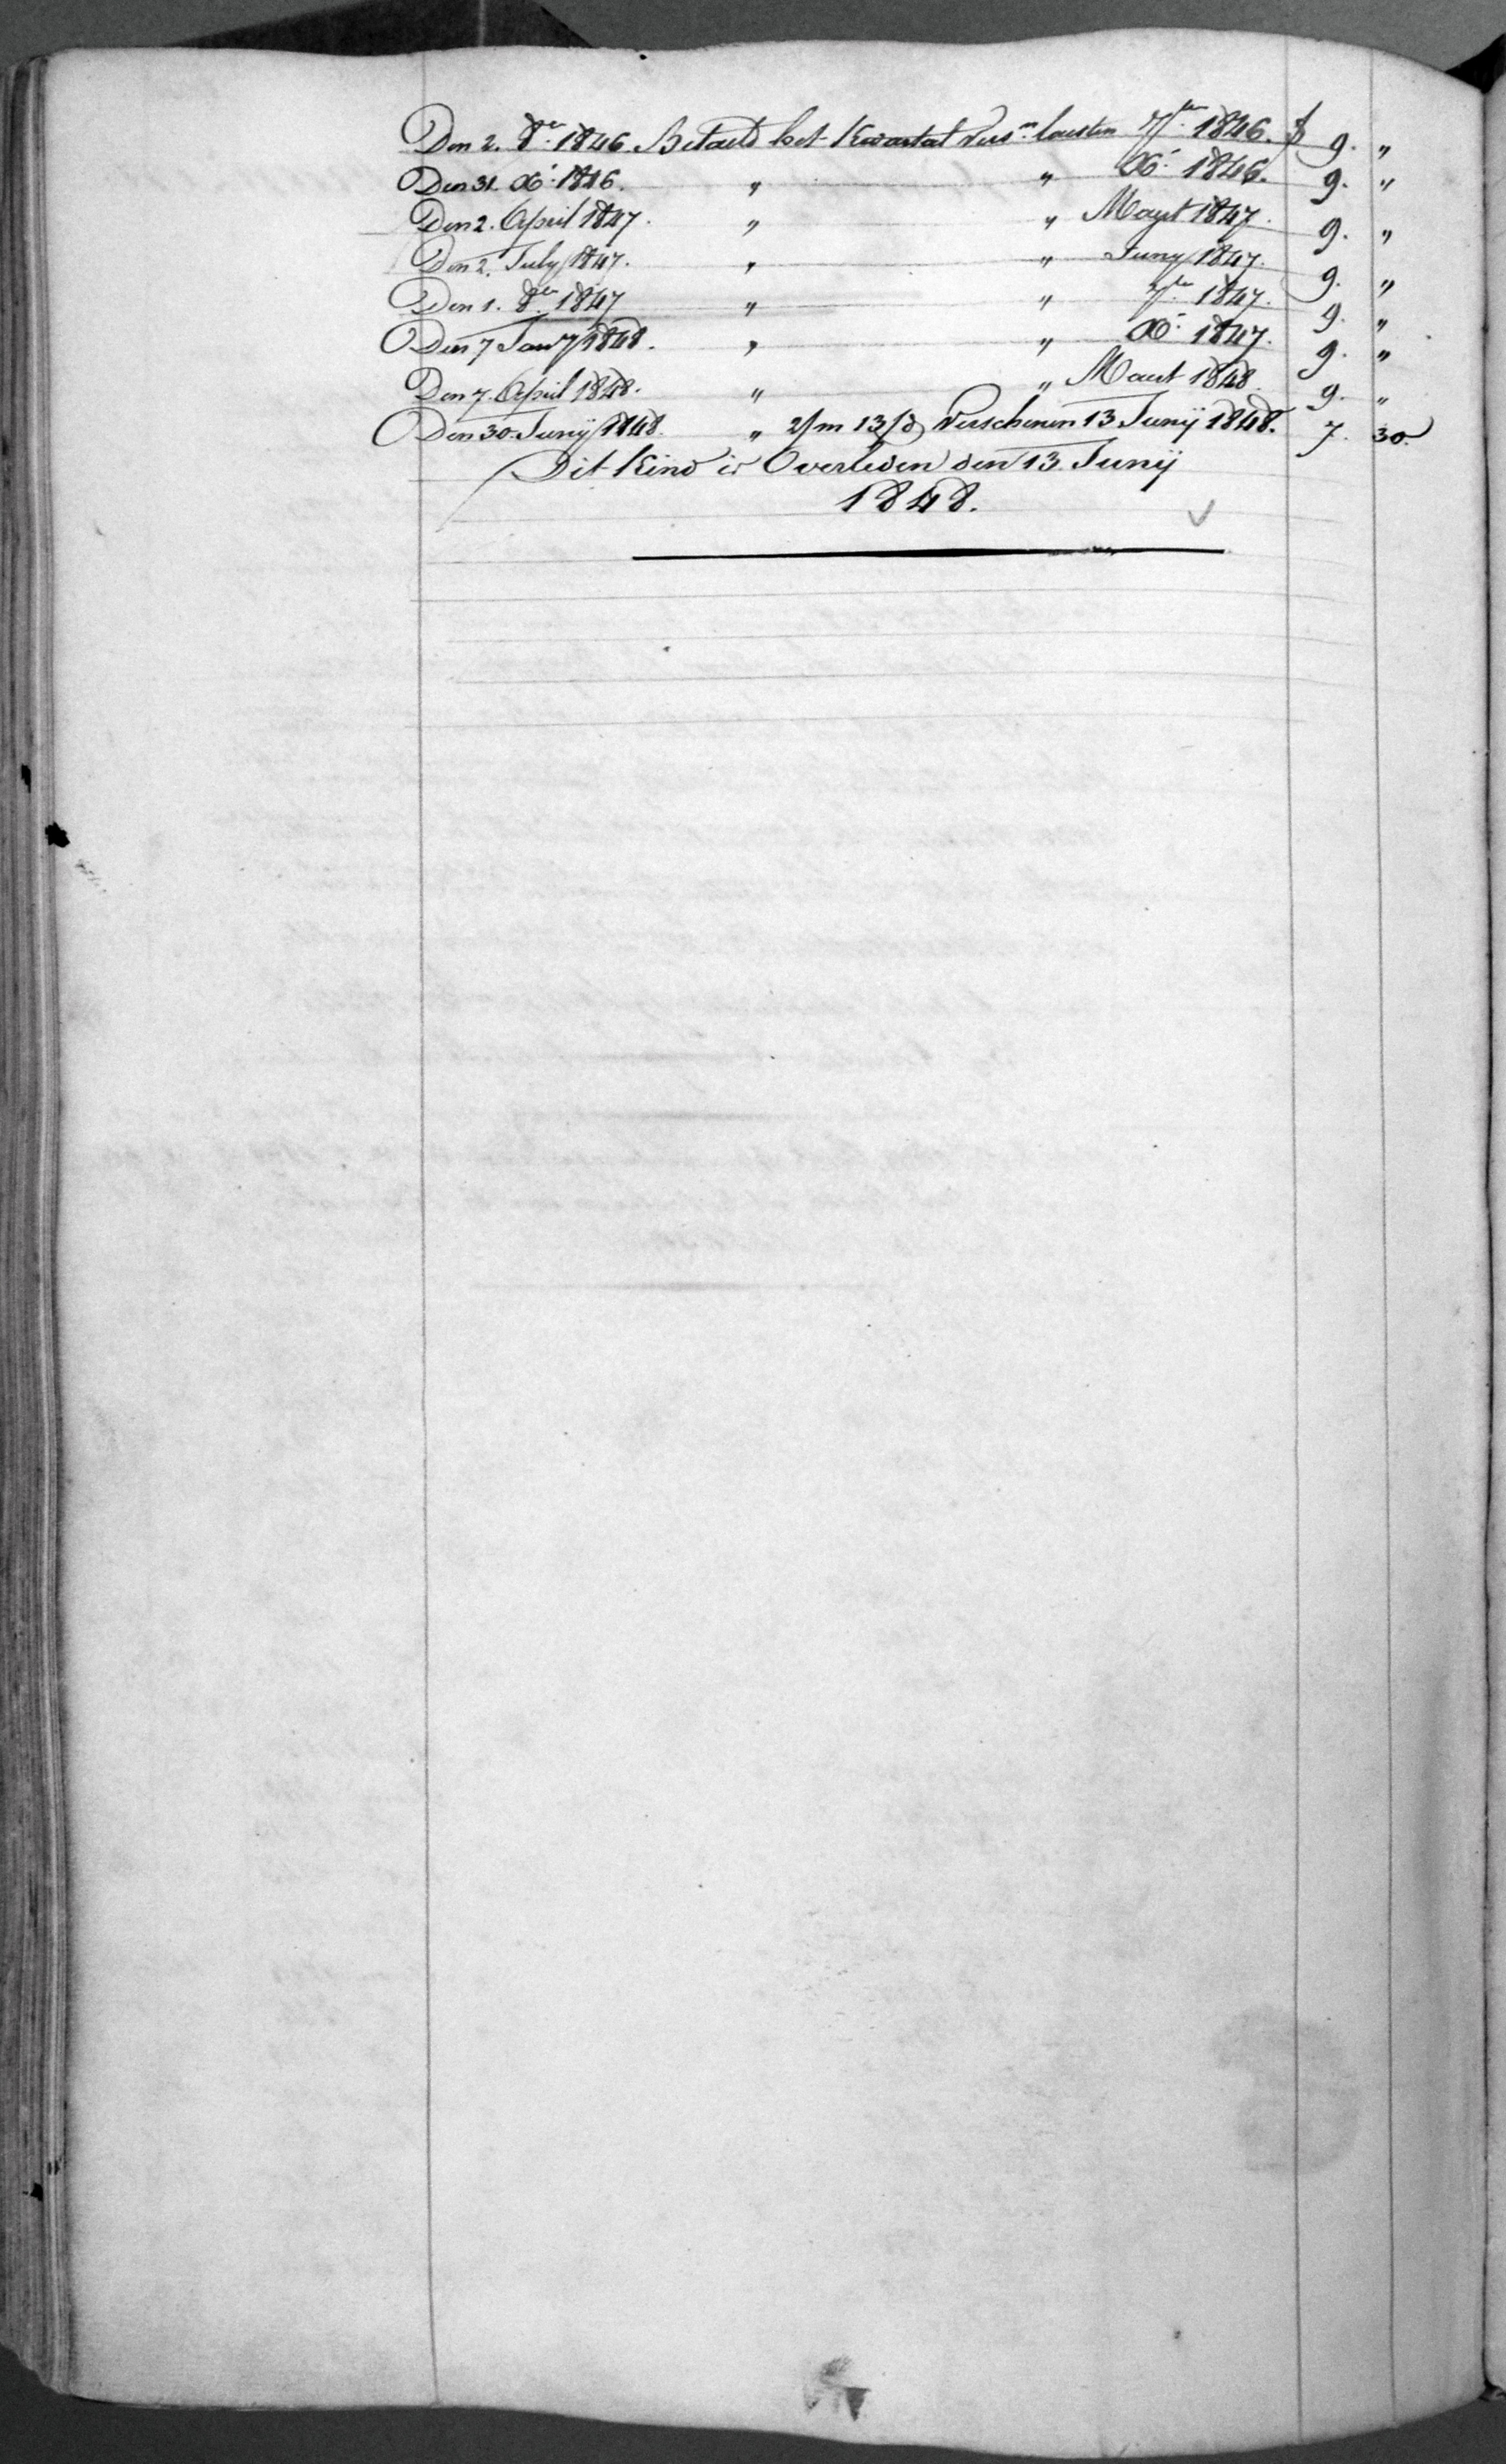 Den 2. 8er 1846. Betaeld het Kwartal Versn laesten 7ber 1846. f 9. "
Den 31. Xb: 1846. " " Xb: 1846. 9. "
Den 2. April 1847. " " Maart 1847. 9. "
Den 2. July 1847. " " Juny 1847. 9. "
Den 1. 8er 1847 " " 7ber 1847. 9. "
Den 7 Jany 1848. " " Xb: 1847. 9. "
Den 7. April 1848. " " Maart 1848. 9. "
Den 30. Junij 1848. " 2/m 13/d Verschenen 13 Junij 1848. 7. 30.
Dit Kind is Overleden den 13 Junij
1848.